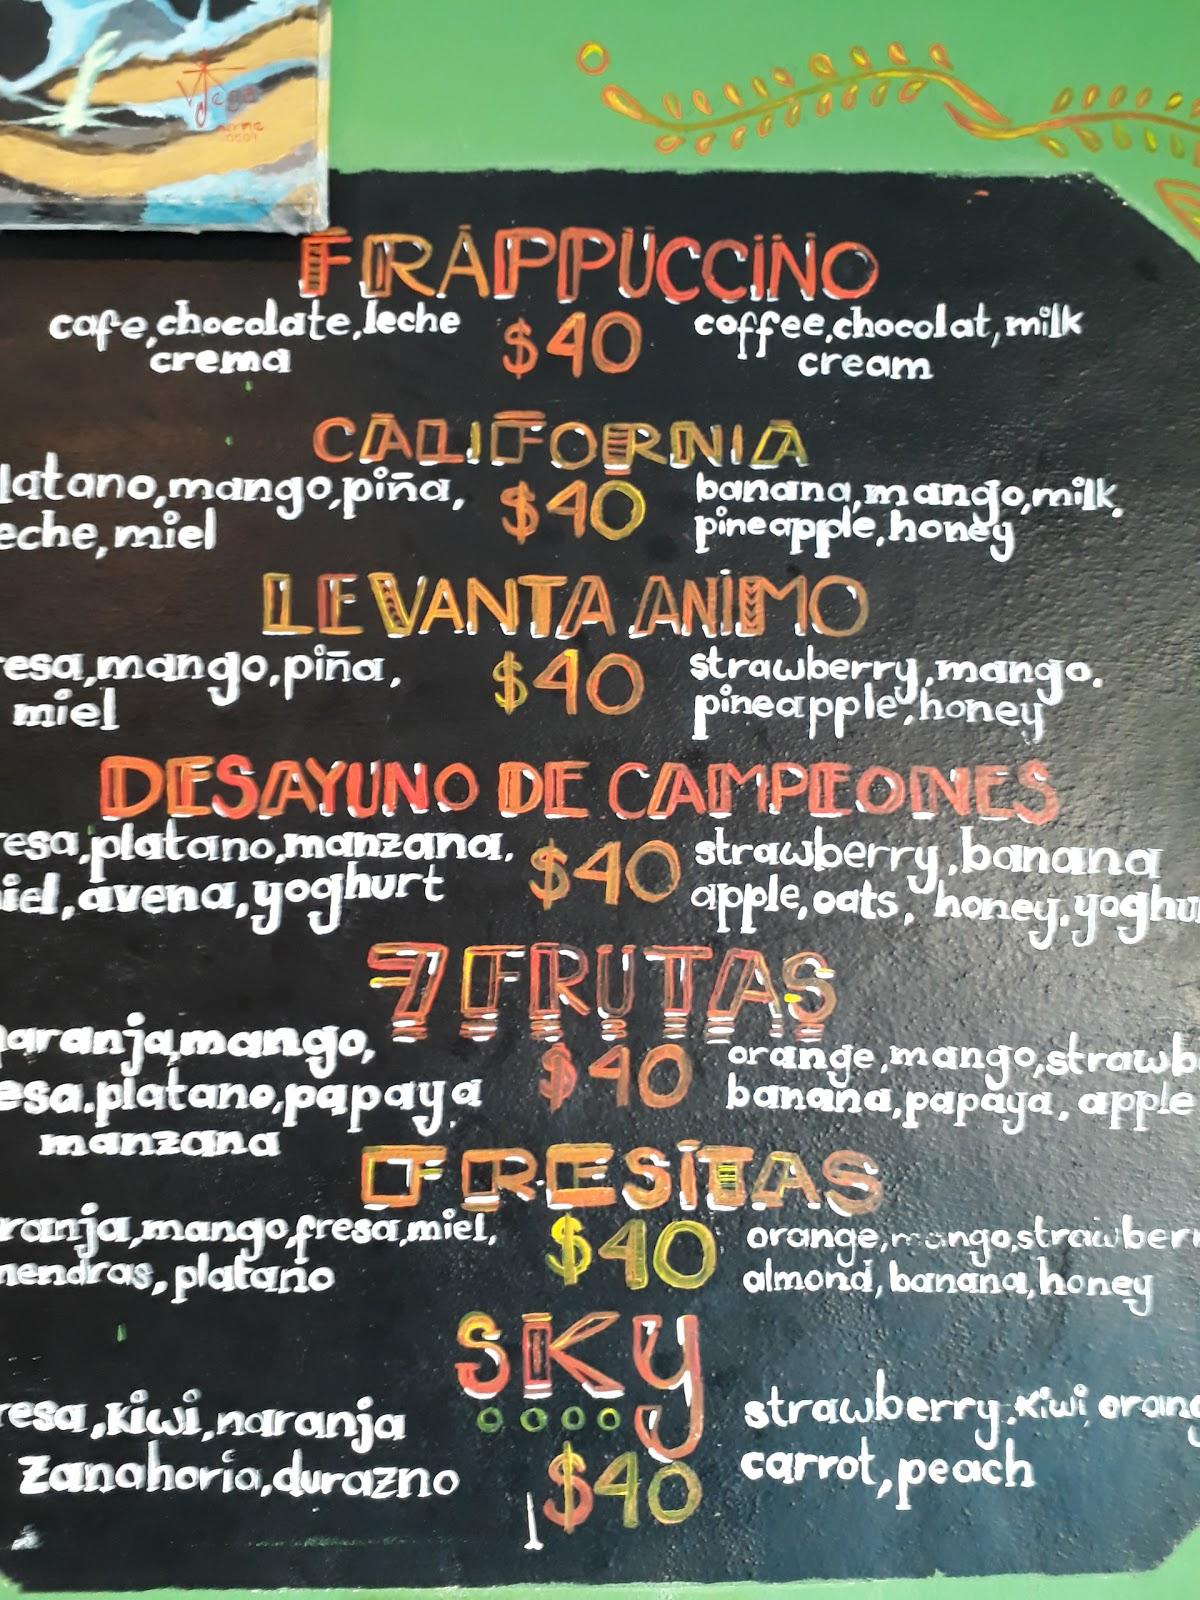 FRAPPUCCINO
cafe, chocolate, leche
crema
$40
coffee, chocolat, milk
cream
CALIFORNIA
latano, mango, piña,
eche, miel
$40
banana, mango, milk,
pineapple, honey
LEVANTA ANIMO
resa, mango, piña,
miel
$40
strawberry, mango.
pineapple, honey
DESAYUNO DE CAMPEONES
resa, platano, manzana.
iel, avena, yoghurt
$40
strawberry, banana
apple, oats, honey, yoghu
7 FRUTAS
naranja, mango,
esa. platano, papaya
manzana
$40
orange, mango, strawb
banana, papaya, apple
FRESITAS
ranja, mango, fresa, miel,
mendras, platano
$40
orange, mango, strawberr
almond, banana, honey
SKY
resa, kiwi, naranja
zanahoria, durazno
$40
strawberry. kiwi orang
carrot, peach